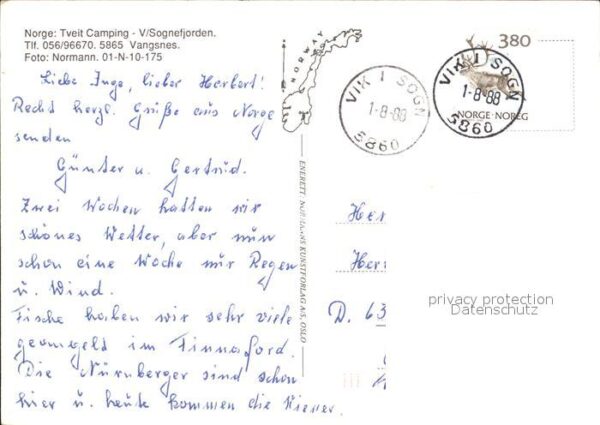 Norge: Tveit Camping - V/Sognefjorden.
Tlf. 056/96670. 5865 Vangsnes.
Foto: Normann. 01-N-10-175
Liebe Inge, lieber Herbert!
Recht herzl. Grüße aus Norge
senden
Günter u. Gertrud.
Zwei Wochen hatten wir
schönes Wetter, aber nun
schon eine Woche nur Regen
u. Wind.
Fische haben wir sehr viele
geangelt im Finnafjord.
Die Nürnberger sind schon
hier u. heute kommen die Wiener.
NORWAY
ENERETT: NORMANNS KUNSTFORLAG A/S, OSLO
VIK I SOGN
1-8-88
5860
380
VIK I SOGN
1-8-88
5860
NORGE·NOREG
Her
D. 63
privacy protection
Datenschutz